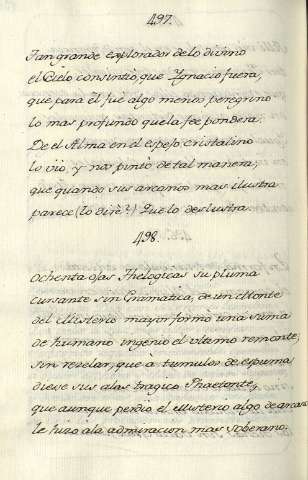 497.
Tan grande explorador de lo divino
el Cielo consintió, que Ygnacio fuera,
que para él fué algo menos peregrino
lo mas profundo que la fee pondera.
De el Alma en el espejo cristalino
lo vio, y nos pintó de tal manera,
que quando sus arcanos mas ilustra
parece (lo diré?) que lo deslustra.
498.
Ochenta ojas Theologicas su pluma
cursante sin Gramatica, de un Monte
del Misterio mayor formó una suma
de humano ingenio el ultimo remonte;
sin rezelar, que à tumulos de espuma
diese sus alas tragico Phaetonte,
que aunque perdio el Misterio algo de arcano
le hizo à la admiracion mas soberano.